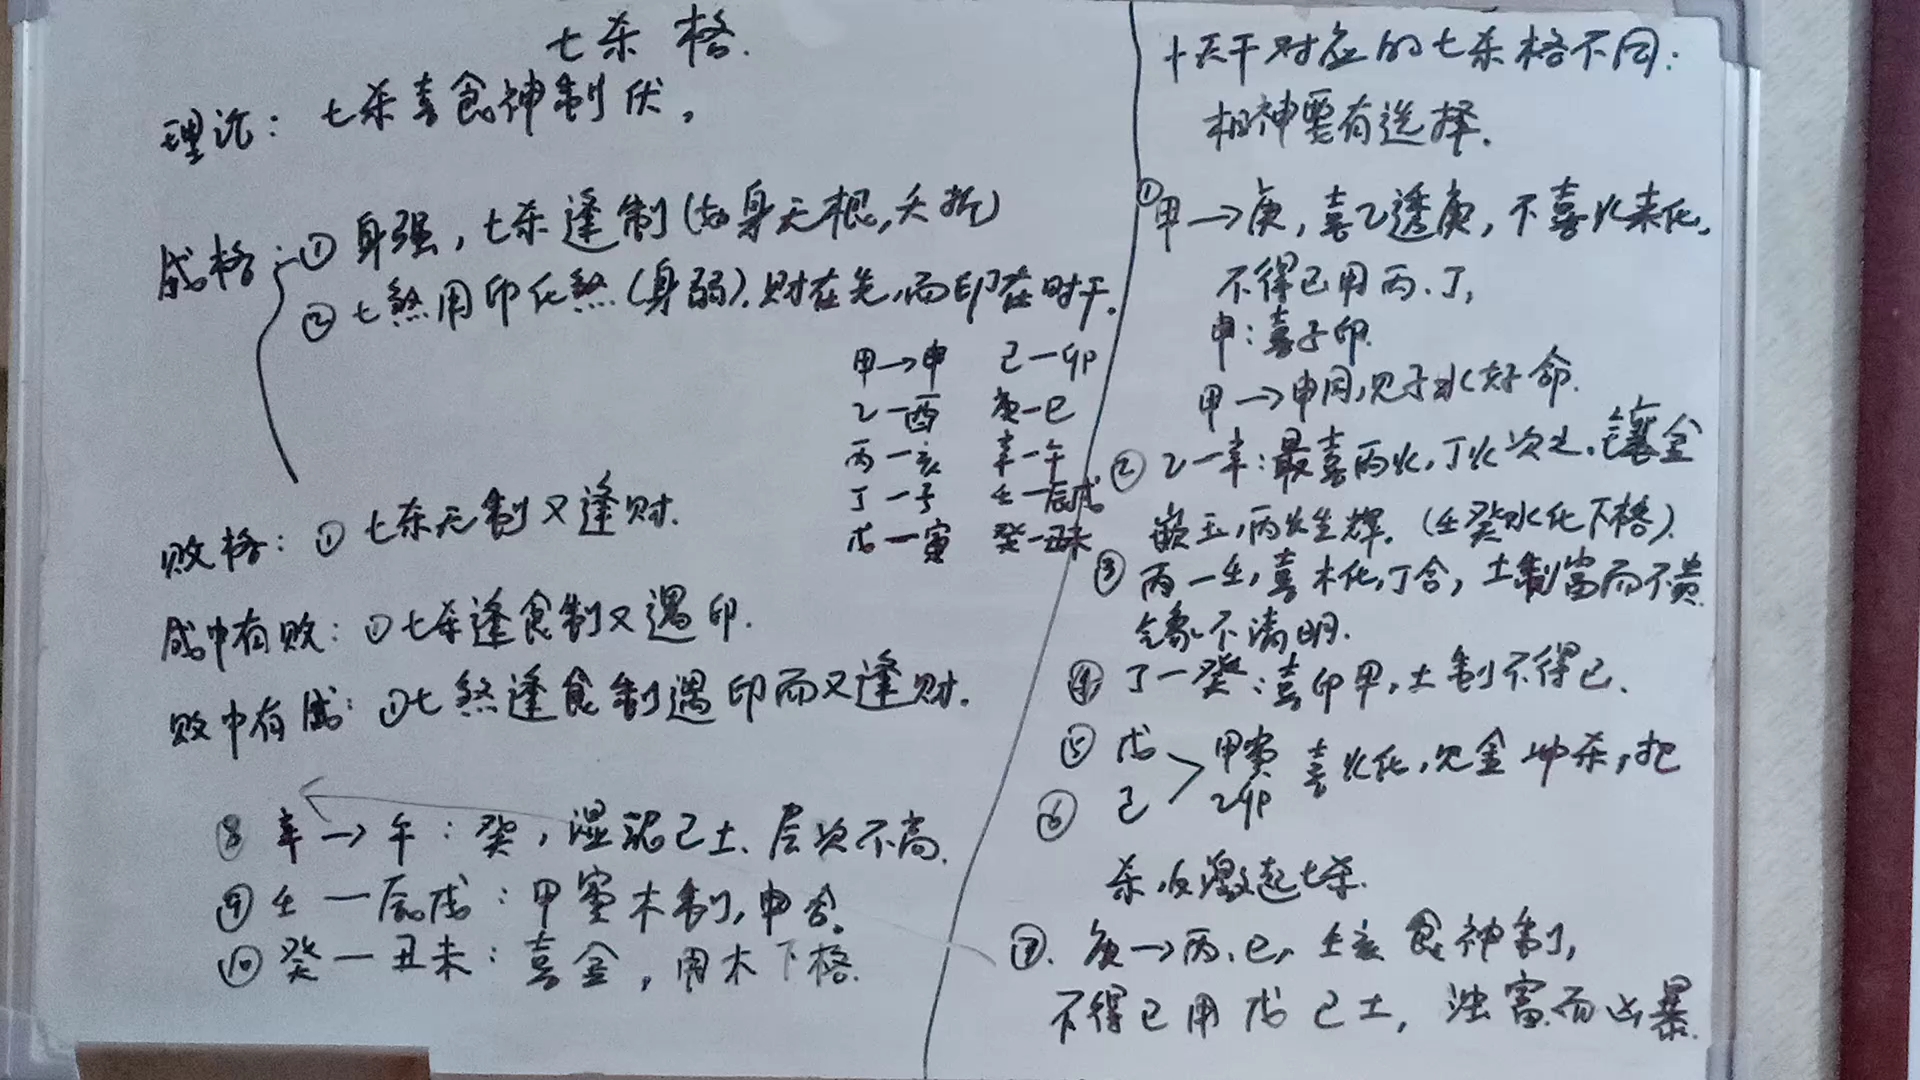 七杀格.
理论：七杀喜食神制伏。
成格：① 身强，七杀逢制(如身无根,夭折)
② 七煞用印化煞(身弱).财在先,而印在时干.
甲→申 己一卯
乙一酉 庚一巳
丙一亥 辛一午
丁一子 壬一辰戌
戊一寅 癸一丑未
败格：① 七杀无制又逢财.
成中有败：①七杀逢食制又遇印.
败中有成：①七煞逢食制遇印而又逢财.
8 辛→午：癸，湿泥己土、层次不高.
⑨ 壬一辰戌：甲寅木制,申合。
⑩ 癸一丑未：喜金，用木下格.
十天干对应的七杀格不同：
相神要有选择.
①甲→庚，喜乙透庚，不喜火来化。
不得已用丙、丁，
申：喜子印.
甲→申月,见子水好命.
② 乙一辛：最喜丙火,丁火次之.镶金
嵌玉,丙火生辉.(壬癸水化下格).
③ 丙一壬,喜木化,丁合，土制富而不贵
气象不清明.
④ 丁一癸：喜印甲,土制不得已.
⑤ 戊 甲寅 喜火化,见金冲杀,把
⑥ 己 乙卯
杀,反激起七杀.
⑦. 庚→丙、巳，壬亥食神制，
不得已用戊己土，浊富而凶暴.